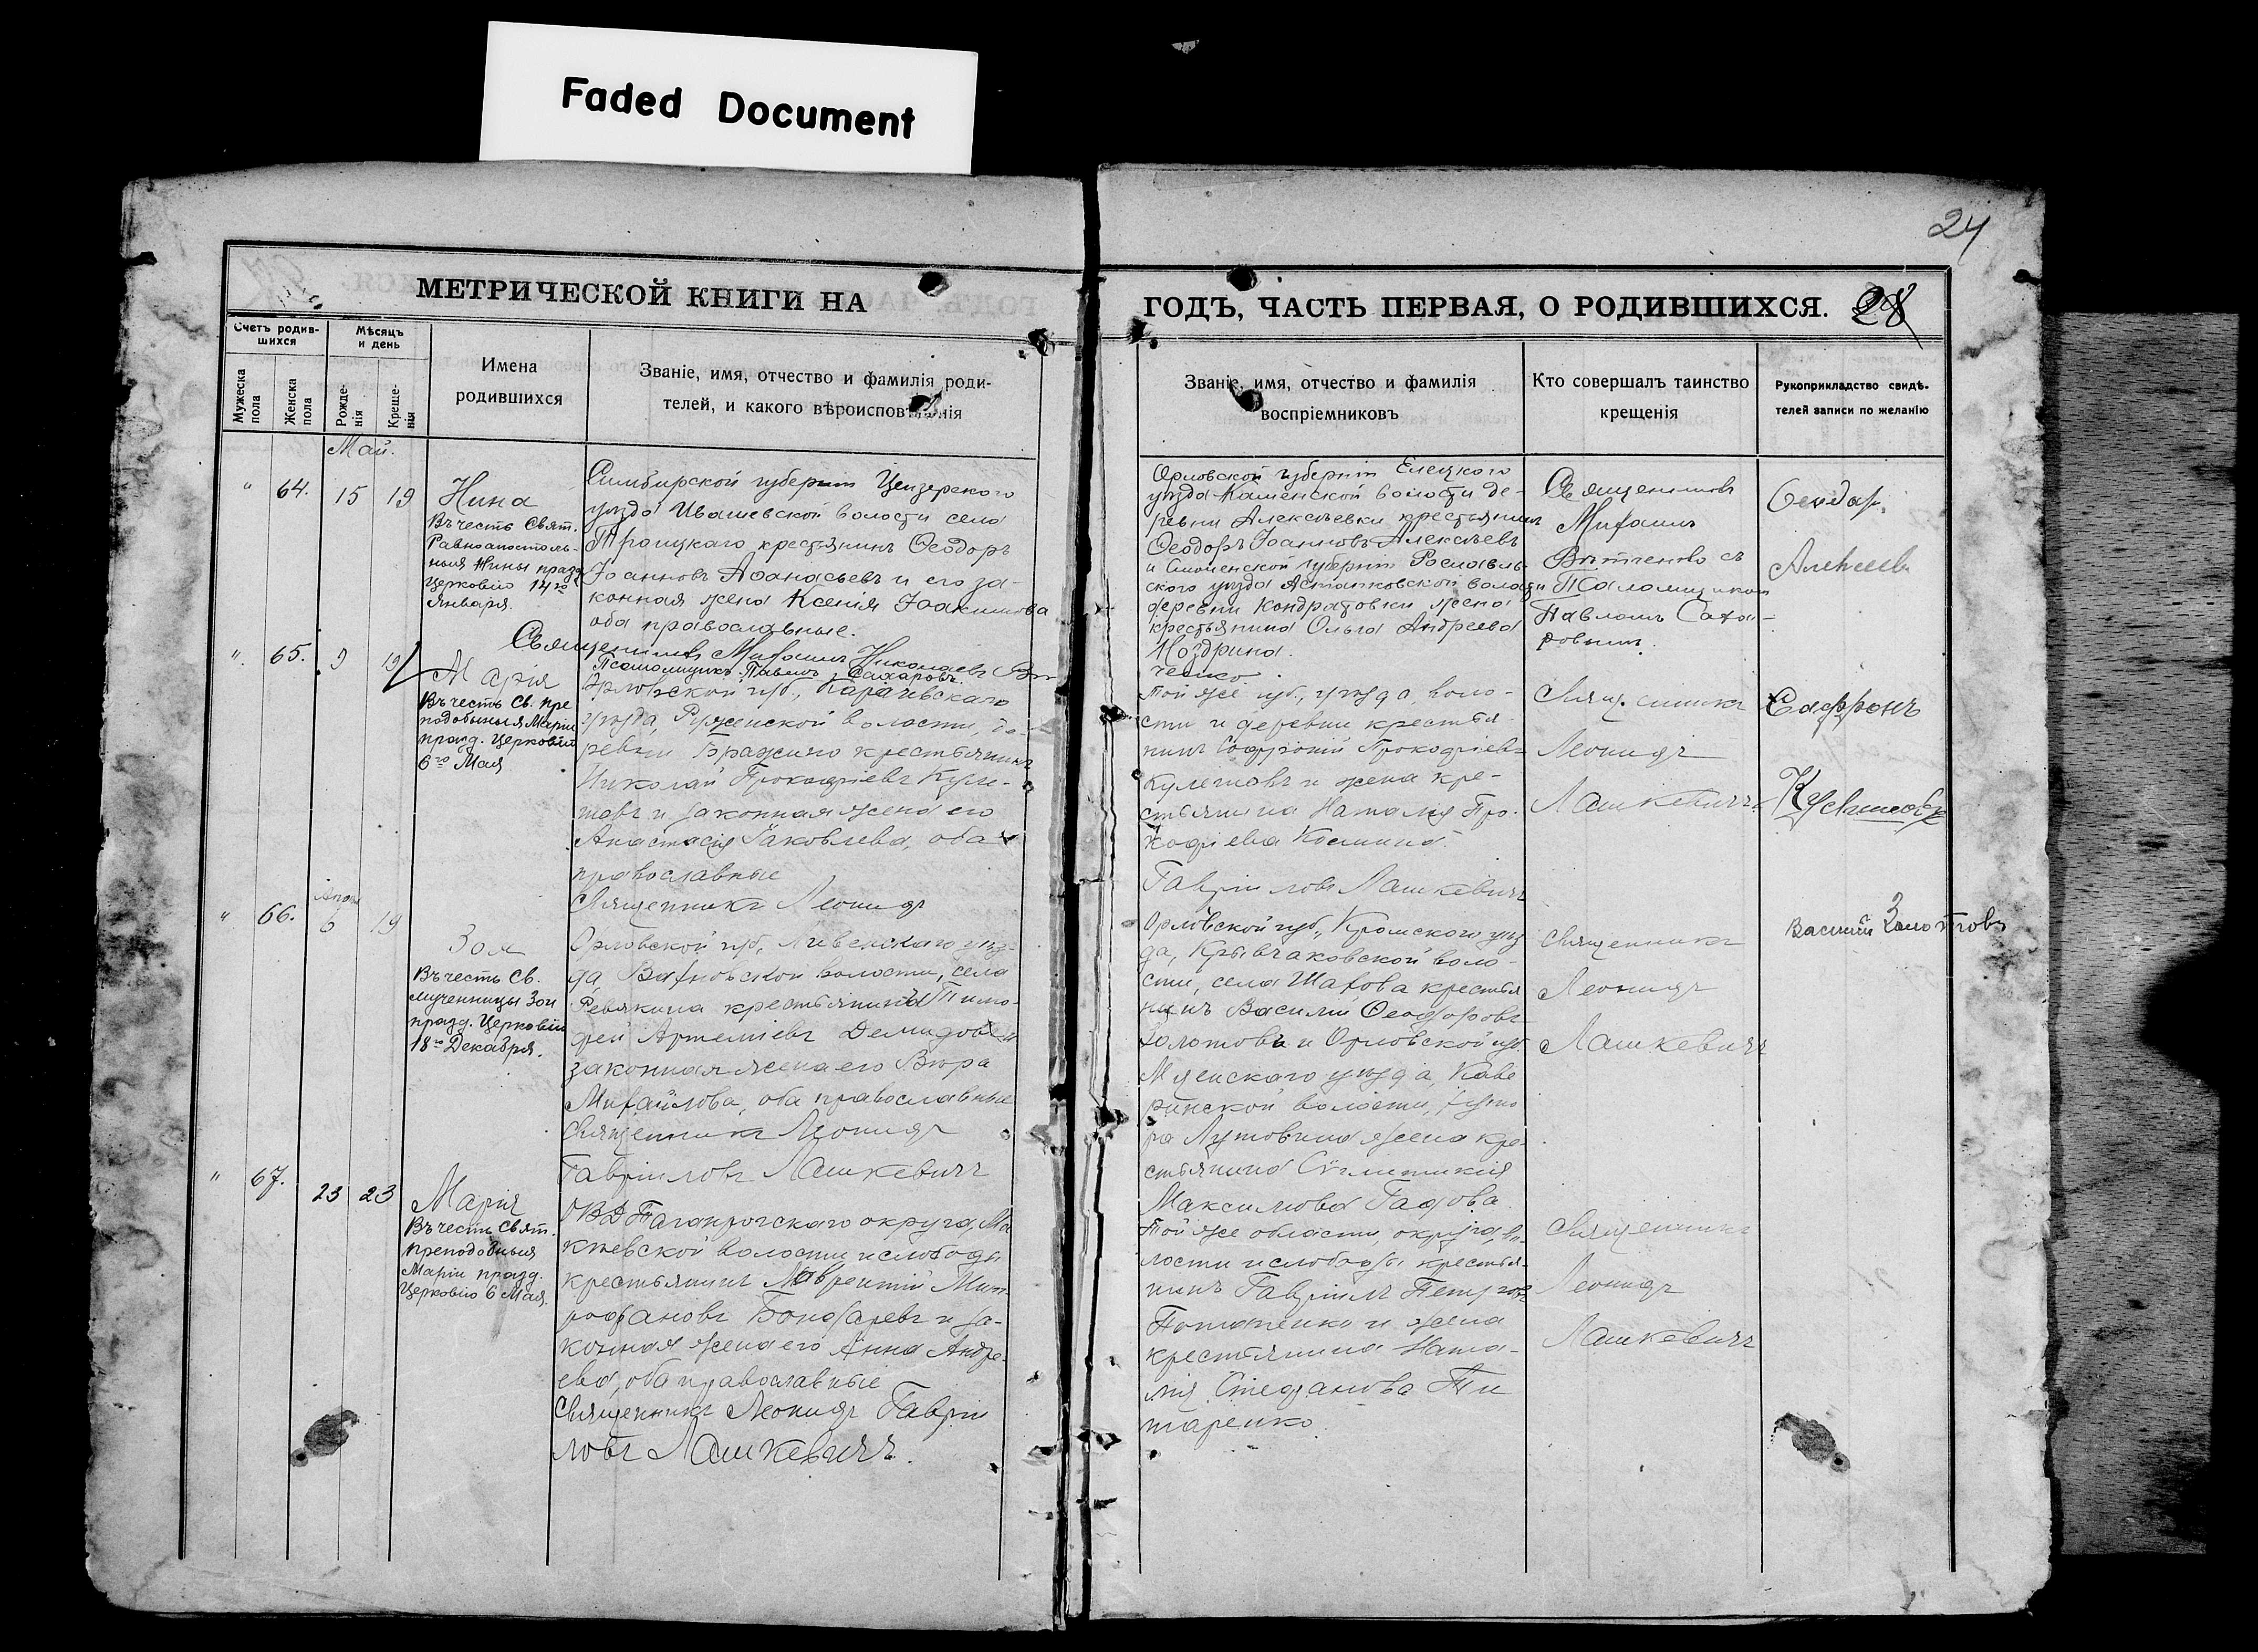 Faded Document
24
МЕТРИЧЕСКОЙ КНИГИ НА
ГОДЪ, ЧАСТЬ ПЕРВАЯ, О РОДИВШИХСЯ.
28
Счетъ родив-
шихся
Мужеска
пола
Женска
пола
Мѣсяцъ
и день
Рожде-
нія
Креще-
нія
Имена
родившихся
Званіе, имя, отчество и фамилія роди-
телей, и какого вѣроисповѣданія
Званіе, имя, отчество и фамилія
воспріемниковъ
Кто совершалъ таинство
крещенія
Рукоприкладство свидѣ-
телей записи по желанію
Май.
" 64. 15 19
Нина
Въ честь Свят.
Равноапостоль-
ныя Нины празд.
Церковію 14го
Января.
Симбирской губерніи
уѣзда Ивашевской волости села
Троицкаго крестьянинъ Ѳеодоръ
Іоанновъ Аѳанасьевъ и его за-
конная жена Ксенія Іоакимова
оба православные.
Священникъ Михаилъ Николаевъ Вѣт-
Псаломщикъ Павелъ Сахаровъ.
Орловской губерніи Елецкого
уѣзда Каменской волости де-
ревни Алексѣевки крестьянинъ
Ѳеодоръ Іоанновъ Алексѣевъ
и Смоленской губерніи Рославль-
ского уѣзда Астапковской волости
деревни Кондратовки жена
крестьянина Ольга Андреева
Ноздрина.
ченко.
Священникъ
Михаилъ
Вѣтченко съ
Псаломщикомъ
Павломъ Саха-
ровымъ.
Ѳеодоръ
Алексеевъ
" 65. 9 19
Марія
Въ честь Св. пре
подобныя Маріи
празд. Церковію
6го Мая
Орловской губ., Карачевскаго
уѣзда, Руженской волости, де-
ревни Бражино крестьянинъ
Николай Прокофіевъ Куле-
шовъ и законная жена его
Анастасія Яковлева, оба
православные
Священникъ Леонидъ
Той же губ., уѣзда, воло-
сти и деревни крестья
нинъ Софроній Прокофіевъ
Кулешовъ и жена кре-
стьянина Наталія Про-
кофіева Косина.
Гавріиловъ Лашкевичъ
Священникъ
Леонидъ
Лашкевичъ.
Сафронъ
Кулешовъ
" 66. Апрѣл 6 19
Зоя
Въ честь Св.
мученницы Зои
празд. Церковію
18го Декабря.
Орловской губ., Ливенскаго уѣз-
да Вахновской волости, села
Ревякина крестьянинъ Тимо-
фей Артеміевъ Демидовъ и
законная жена его Вѣра
Михайлова, оба православные
Священникъ Леонидъ
Гавріиловъ Лашкевичъ
Орловской губ., Кромского уѣз
да, Кривчаковской воло-
сти, села Шахова крестья
нинъ Василій Ѳеодоровъ
Золотовъ и Орловской губ.
Мценскаго уѣзда,
волости, хуто
ра Лутовина жена кре-
стьянина Синклитикія
Максимова
Священникъ
Леонидъ
Лашкевичъ
Василий Золотовъ
" 67. 23 23
Марія
Въ честь Свят.
преподобныя
Маріи празд.
Церковію 6 Мая.
ОВД Таганрогскаго округа, Ма
кѣевской волости и слободы
крестьянинъ Лаврентій Мит-
рофановъ Бондаревъ и за-
конная жена его Анна Андре-
ева, оба православные
Священникъ Леонидъ Гавріи
ловъ Лашкевичъ.
Той же области, округа, во-
лости и слободы крестья-
нинъ Гавріилъ Петровъ
Потапенко и жена
крестьянина Ната-
лія Стефанова Ти
таренко.
Священникъ
Леонидъ
Лашкевичъ